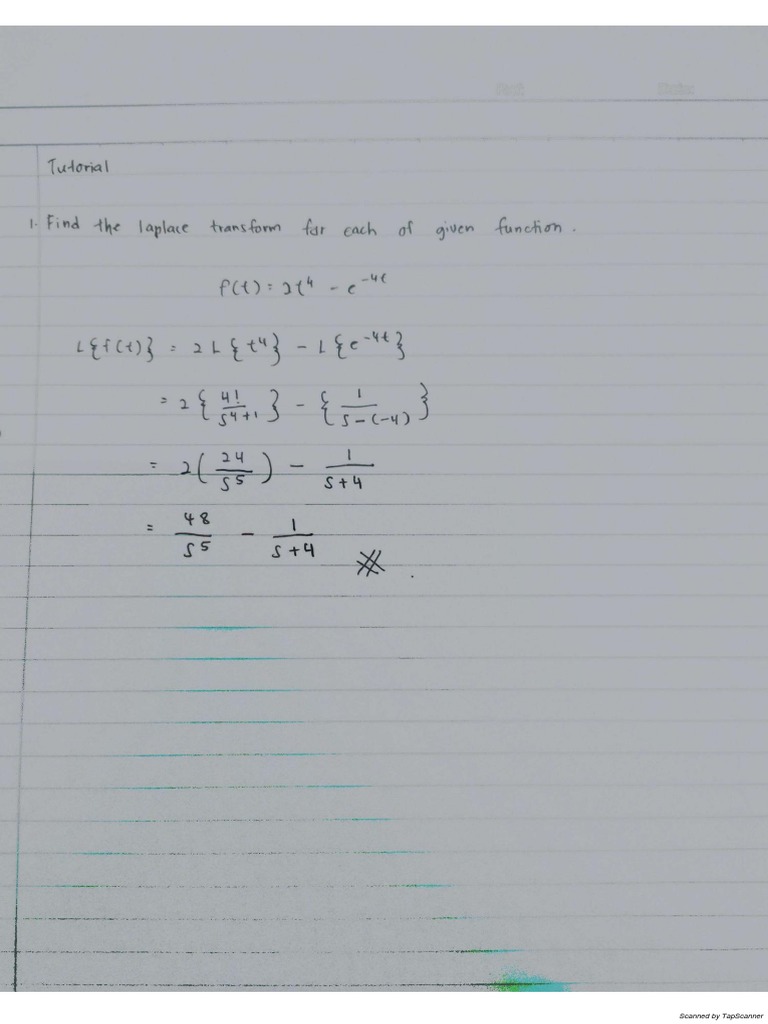 Tutorial
1. Find the laplace transform for each of given function.
f(t) = 2t⁴ - e^-4t
L{f(t)} = 2L{t⁴} - L{e^-4t}
= 2{4!/s^4+1} - {1/s-(-4)}
= 2(24/s⁵) - 1/s+4
= 48/s⁵ - 1/s+4
Scanned by TapScanner